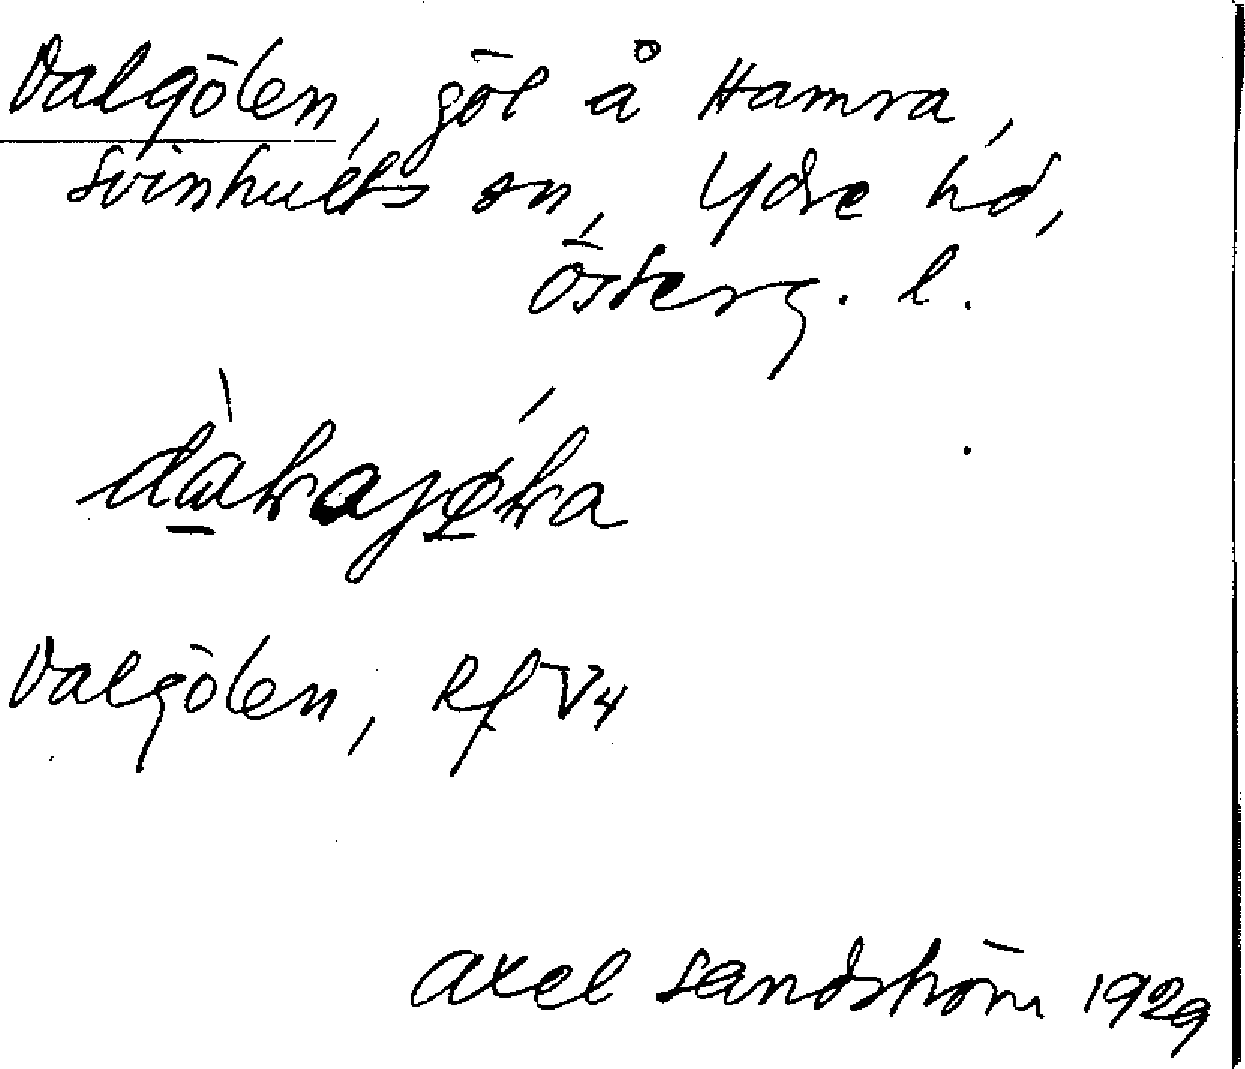 Dalgölen, göl å Hamra,
Svinhults sn, Ydre hd,
Österg. l.
Dalgölen, Rf V4
Axel Sandström 1929